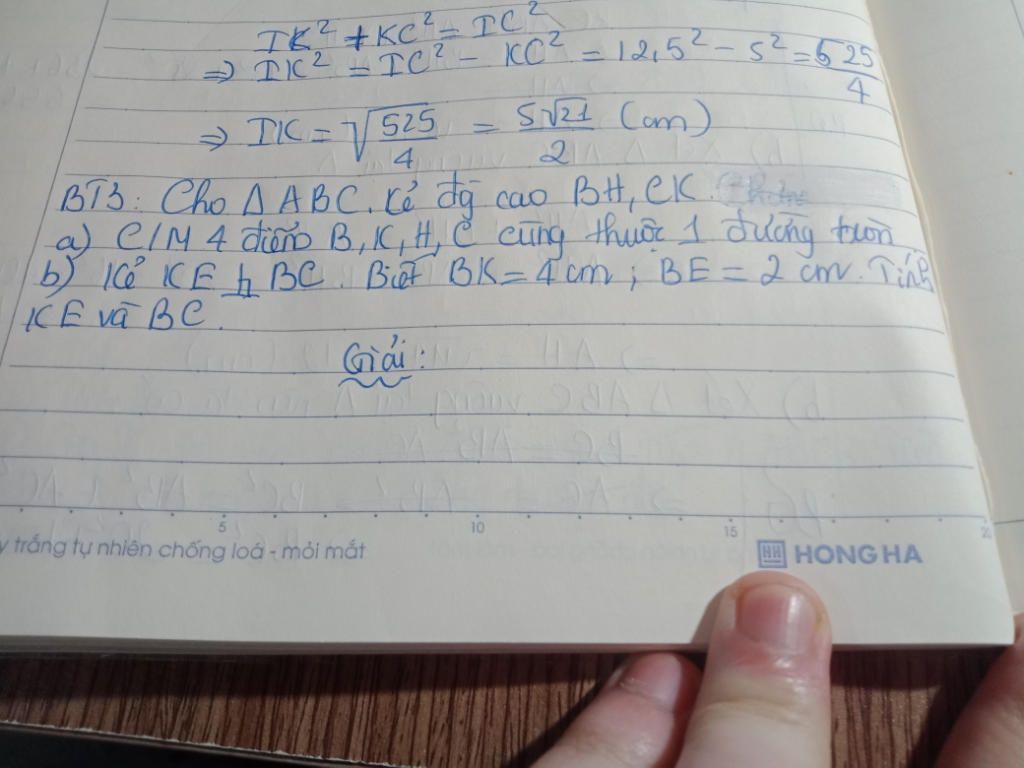 IK² + KC² = IC²
=> IK² = IC² - KC² = 12,5² - 5² = 525/4
=> IK = √525/4 = 5√21/2 (cm)
BT3: Cho Δ ABC. Kẻ đg cao BH, CK.
a) C/M 4 điểm B, K, H, C cùng thuộc 1 đường tròn
b) Kẻ KE ⊥ BC. Biết BK = 4 cm ; BE = 2 cm. Tính
KE và BC.
Giải:
5 10 15 20
trắng tự nhiên chống loá - mỏi mắt
HH HONG HA